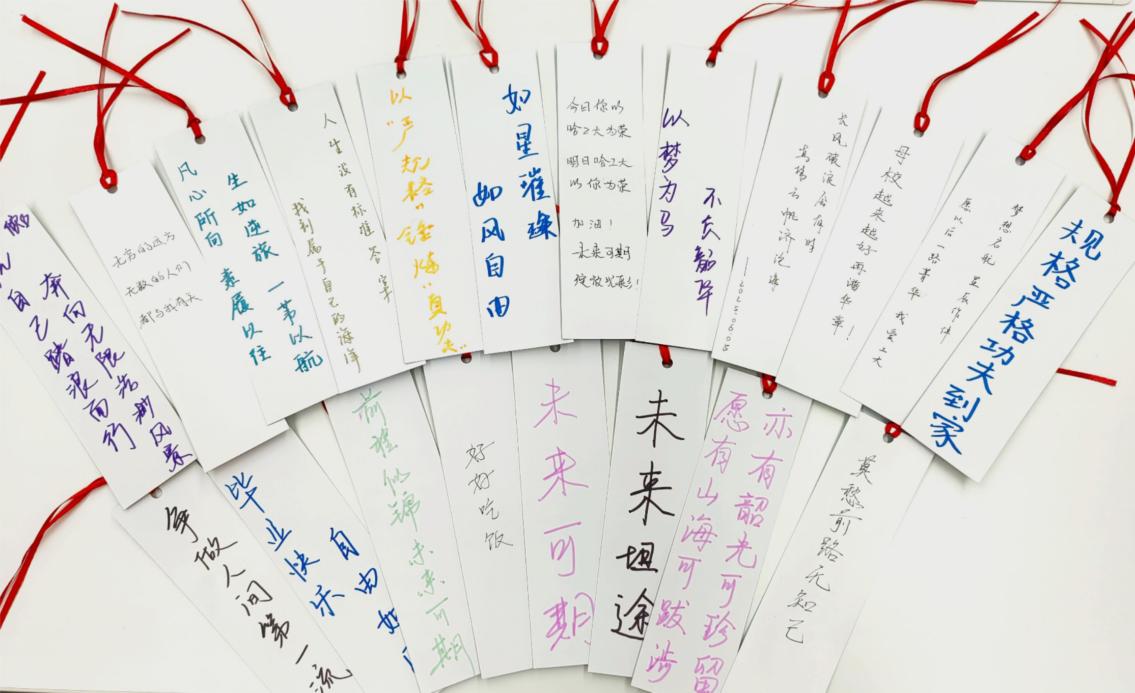 做
自己踏浪而行
奔向无限浩渺风景
无穷的远方
无数的人们
都与我有关
凡心所向 素履以往
生如逆旅 一苇以航
人生没有标准答案
找到属于自己的海洋
以
"严规格"锤炼"真功夫"
如星璀璨
如风自由
今日你以
哈工大为荣
明日哈工大
以你为荣
加油!
未来可期
绽放光彩!
以梦为马
不负韶华
长风破浪会有时
直挂云帆济沧海
——2025.06.05
母校越来越好再谱华章!
梦想启航 星辰作伴
愿以后一路芳华 我爱工大
规格严格功夫到家
争做人间第一流
毕业快乐
自由如
前程似锦 未来可期
好好吃饭
未来可期
未来坦途
愿有山海可跋涉
亦有韶光可珍留
莫愁前路无知己